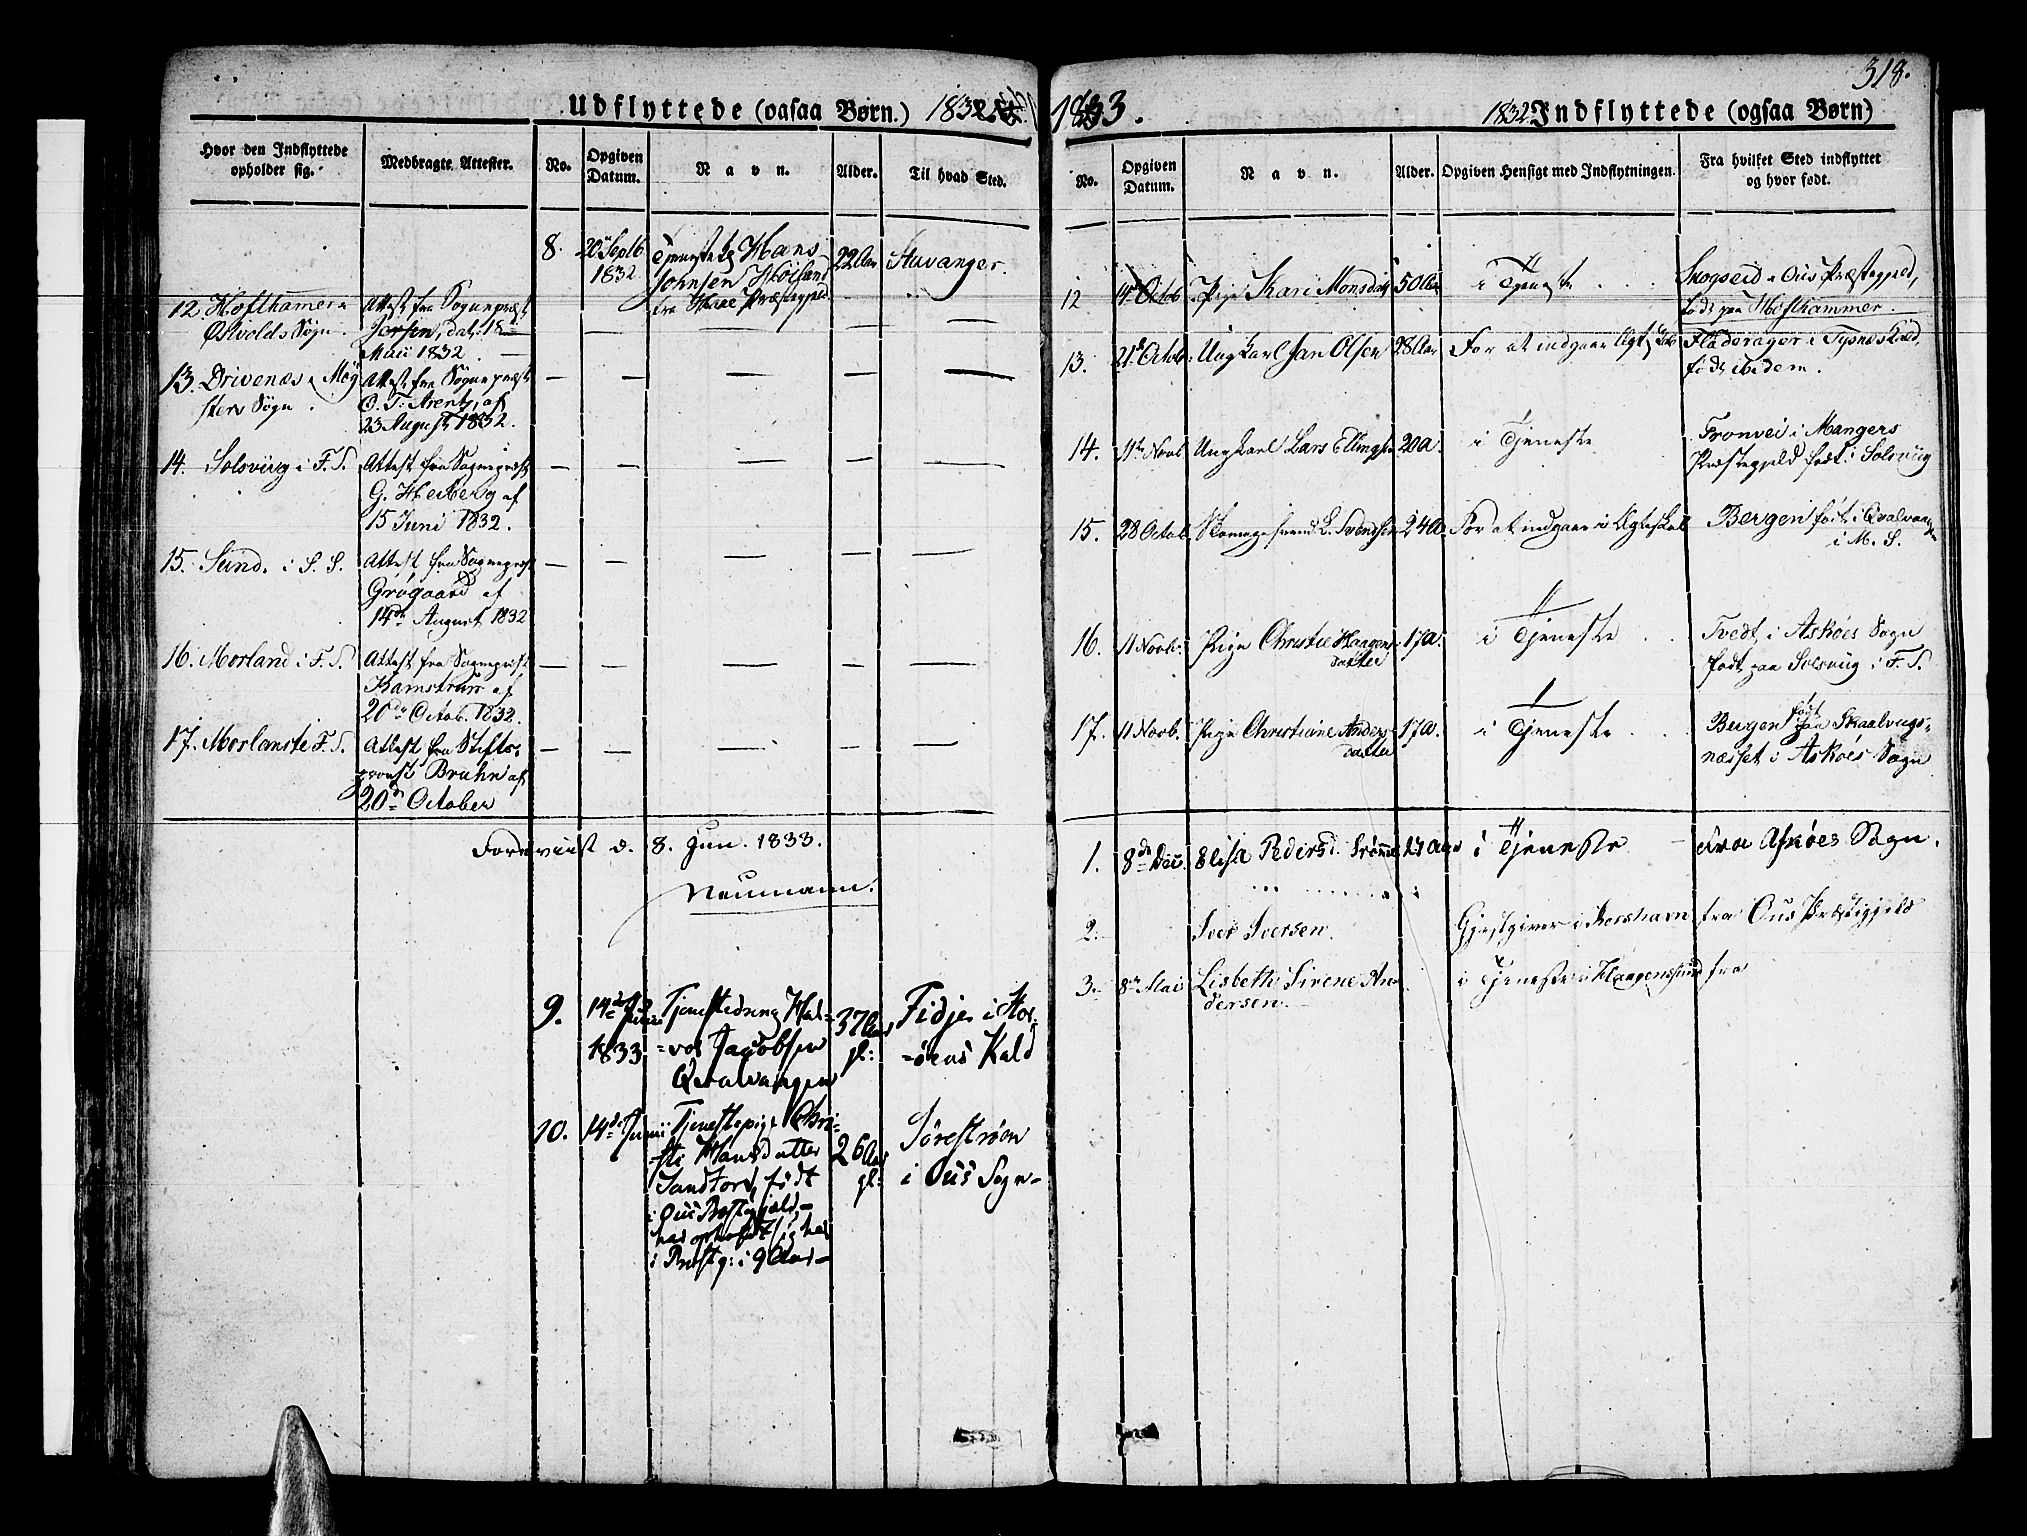 Udflyttede (ogsaa Børn.) 1832
Hvor den Indflyttede
opholder sig.
Medbragte Attester.
No.
Opgiven
Datum.
Navn.
Alder.
Til hvad Sted.
8. 20 Septb
1832
Hans
Johnsen
fra Præstegjeld
22 Aar
Stavanger.
12 Hofthamer i
Østvolds Sogn.
Attest fra Sognepræst
Jersin, dat. 18
Maii 1832.
13. Drivenæs i Møg
sters Sogn.
Attest fra Sognepræst
O. T. Arentz, af
23 August 1832.
14. Solsviig i F. S.
Attest fra Sognepræst
G. Heiberg af
15 Juni 1832.
15. Sund. i S. S.
Attest fra Sognepræst
Grøgaard af
14de August 1832
16. Morland i F. S.
Attest fra Sognepræst
Kamstrup af
20de Octob. 1832.
17. Morland i F. S.
Attest fra Stifts-
provst Bruhn af
20de October
Foreviist d. 8. Jun. 1833.
Neumann.
9. 14de Junii
1833
Tjenestedreng Hal-
-vor Jacobsen
Qvalvaagen
37 Aar
gl:
Fidje i
Kald
10. 14de Junii
Tjenestepige Chri-
-sti Hansdatter
Sandtorv, født
i Ous Præstegjeld,
har opholdt sig her
i Præstg: i 9 Aar
26 Aar
gl:
Sørestrøen
i Ous Sogn
318.
1833.
1832 Indflyttede (ogsaa Børn)
No.
Opgiven
Datum.
Navn.
Alder.
Opgiven Hensigt med Indflytningen.
Fra hvilket Sted indflyttet
og hvor født.
12 14 Octob Pige Kari Monsdatr 50 Aar i Tjeneste
Skogseid i Ous Præstegjeld,
født paa Hofthammer.
13. 21 Octob Ungkarl Jan Olsen 28 Aar For at indgaae Ægteskab
i Tysnæs Kald,
født ibidem.
14. 11te Novb Ungkarl Lars Ellingsen 20 A. i Tjeneste
Fronvei i Mangers
Præstegjeld født i Solsviig
15. 28 Octob. L. Svendsen 24 A. For at indgaae i Ægteskab
Bergen født i Qvalvaagen
i M. S.
16. 11 Novbr. Pige Christie Haagens-
datter
17 A. i Tjeneste
Tvedt, i Askøes Sogn
født paa Solsviig i F. S.
17. 11 Novb. Pige Christiane Anders-
datter
17 A. i Tjeneste
Bergen født paa Skaalvigs-
næsset i Askøes Sogn
1. 8de Dec. Elisa Pedersd. i Tjeneste
fra Askøes Sogn.
2. Iver Iversen.
Gjestgiver i Korshavn fra Ous Præstegjeld
3. 8de Mai Lisbeth Sirene An-
dersen.
i Tjeneste i Haagensund fra